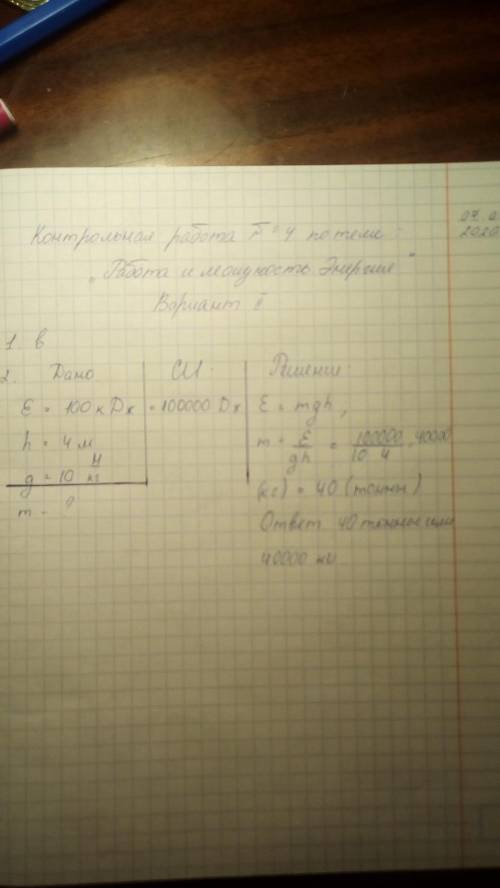 07. 0
2020
Контрольная работа №4 по теме:
„Работа и мощность. Энергия"
Вариант II
1. в
2. Дано СИ: Решение:
E = 100 кДж = 100000 Дж E = mgh,
h = 4 м m = E/gh = 100000/10 4 = 40000
g = 10 Н/кг (кг) = 40 (тонн)
m - ? Ответ 40 тонны или
40000 кг